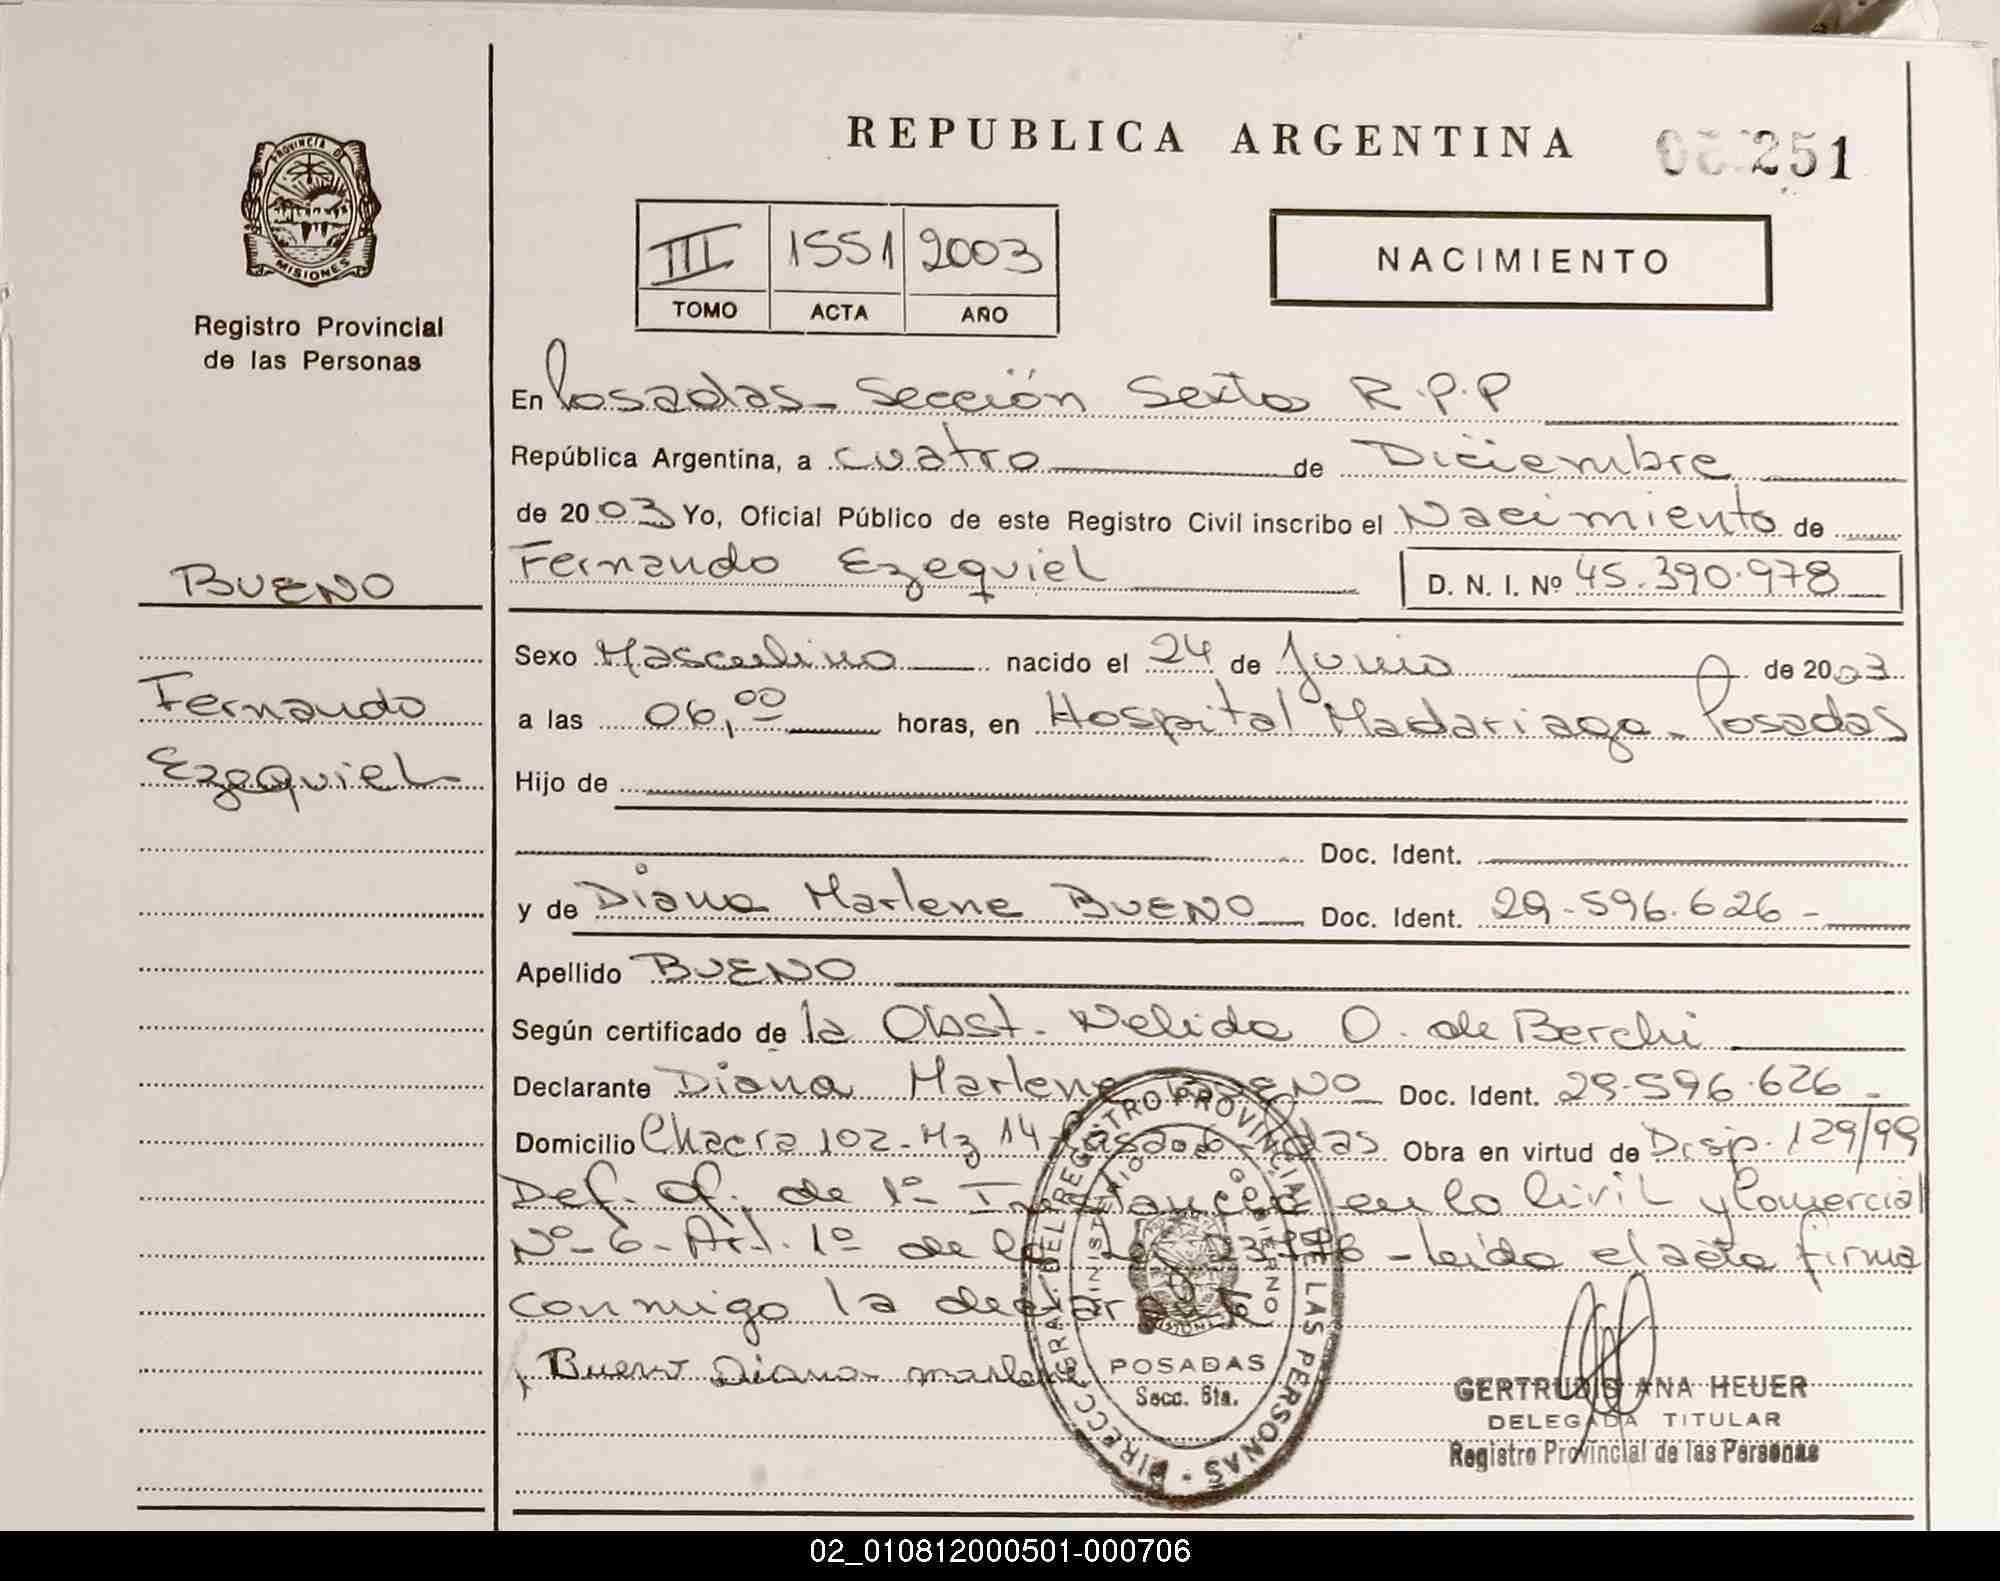 REPUBLICA ARGENTINA
251
PROVINCIA DE
MISIONES
Registro Provincial
de las Personas
III 1551 2003
TOMO ACTA AÑO
NACIMIENTO
En Posadas - Sección Sexta R.P.P
República Argentina, a cuatro de Diciembre
de 2003 Yo, Oficial Público de este Registro Civil inscribo el Nacimiento de
Fernando Ezequiel D. N. I. Nº 45.390.978
BUENO
Fernando
Ezequiel
Sexo Masculino nacido el 24 de Junio de 2003
a las 06,00 horas, en Hospital Madariaga - Posadas
Hijo de
Doc. Ident.
y de Diana Marlene BUENO Doc. Ident. 29.596.626 -
Apellido BUENO
Según certificado de la Obst. Nelida O. de Berchi
Declarante Diana Marlene BUENO Doc. Ident. 29.596.626 -
Domicilio Chacra 102 - Mz 14 - Obra en virtud de Disp. 129/99
Def. Of. de 1º Instancia en lo Civil y Comercial
Nº 6 - Art. 1º de la - leido el acta firma
conmigo la declarante
Bueno Diana marlene
DIRECC. GRAL. DEL REGISTRO PROVINCIAL DE LAS PERSONAS
MINISTERIO GOBIERNO
POSADAS
Secc. 6ta.
GERTRUDIS ANA HEUER
DELEGADA TITULAR
Registro Provincial de las Personas
02_010812000501-000706